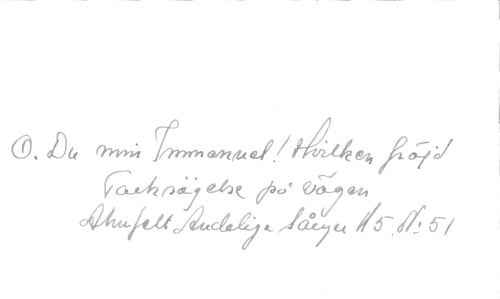 O. Du min Immanuel! Hvilken fröjd
Tacksägelse på vägen
Ahnfelt Andelige Sånger H5. N: 51